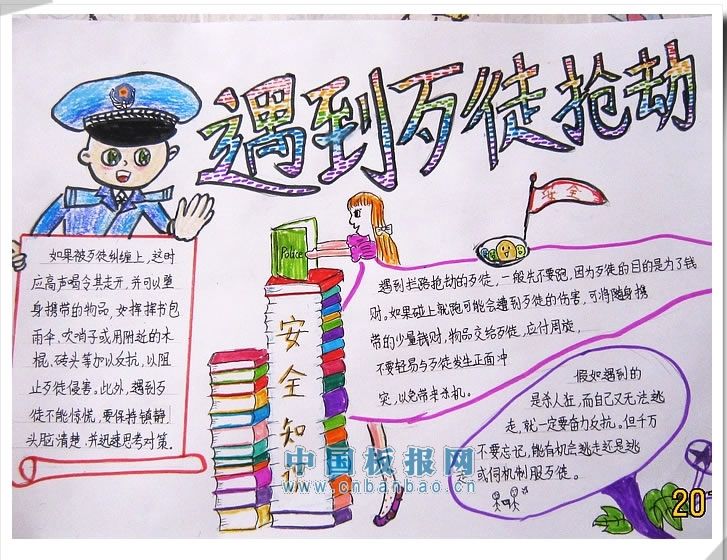 遇到歹徒抢劫
如果被歹徒纠缠上，这时
应高声喝令其走开，并可以
身携带的物品，如挥挥书包
雨伞、吹哨子或用附近的木
棍、砖头等加以反抗，以阻
止歹徒侵害。此外，遇到歹
徒不能惊慌，要保持镇静，
头脑清楚，并迅速思考对策。
Police
安全知
安全
遇到拦路抢劫的歹徒，一般先不要跑，因为歹徒的目的是为了钱
财。如果碰上就跑可能会遭到歹徒的伤害，可将随身携
带的少量钱财，物品交给歹徒，应付周旋，
不要轻易与歹徒发生正面冲
突，以免带来杀机。
假如遇到的
是杀人狂，而自己又无法逃
走，就一定要奋力反抗。但千万
不要忘记，能有机会逃走还是逃
或伺机制服歹徒。
中国板报网
www.cnbanbao.cn
20